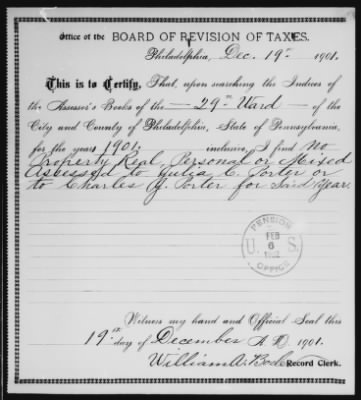 Office of the BOARD OF REVISION OF TAXES.
Philadelphia, Dec. 19th 1901.
This is to Certify, That, upon searching the Indices of
the Assessor's Books of the 29th Ward of the
City and County of Philadelphia, State of Pennsylvania,
for the year 1901. inclusive, I find no
Property Real, Personal or Mixed
Assessed to Julia C. Porter or
to Charles Y. Porter for Said Year.
PENSION
FEB
U. 6 S.
1902
OFFICE
Witness my hand and Official Seal this
19th day of December A. D. 1901.
William A. Record Clerk.